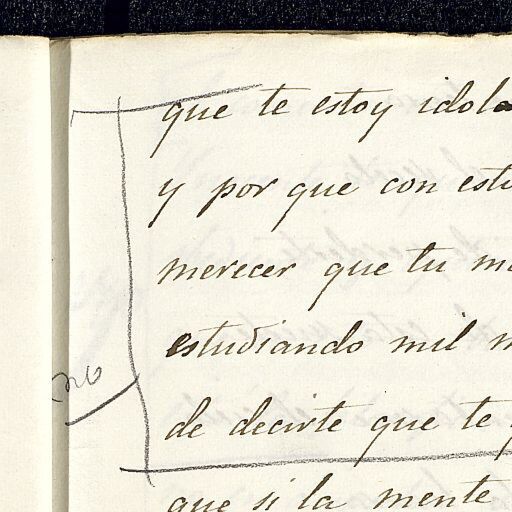 que te estoy idola
y por que con estu
merecer que tu
estudiando mil
no
de decirte que te
que si la mente